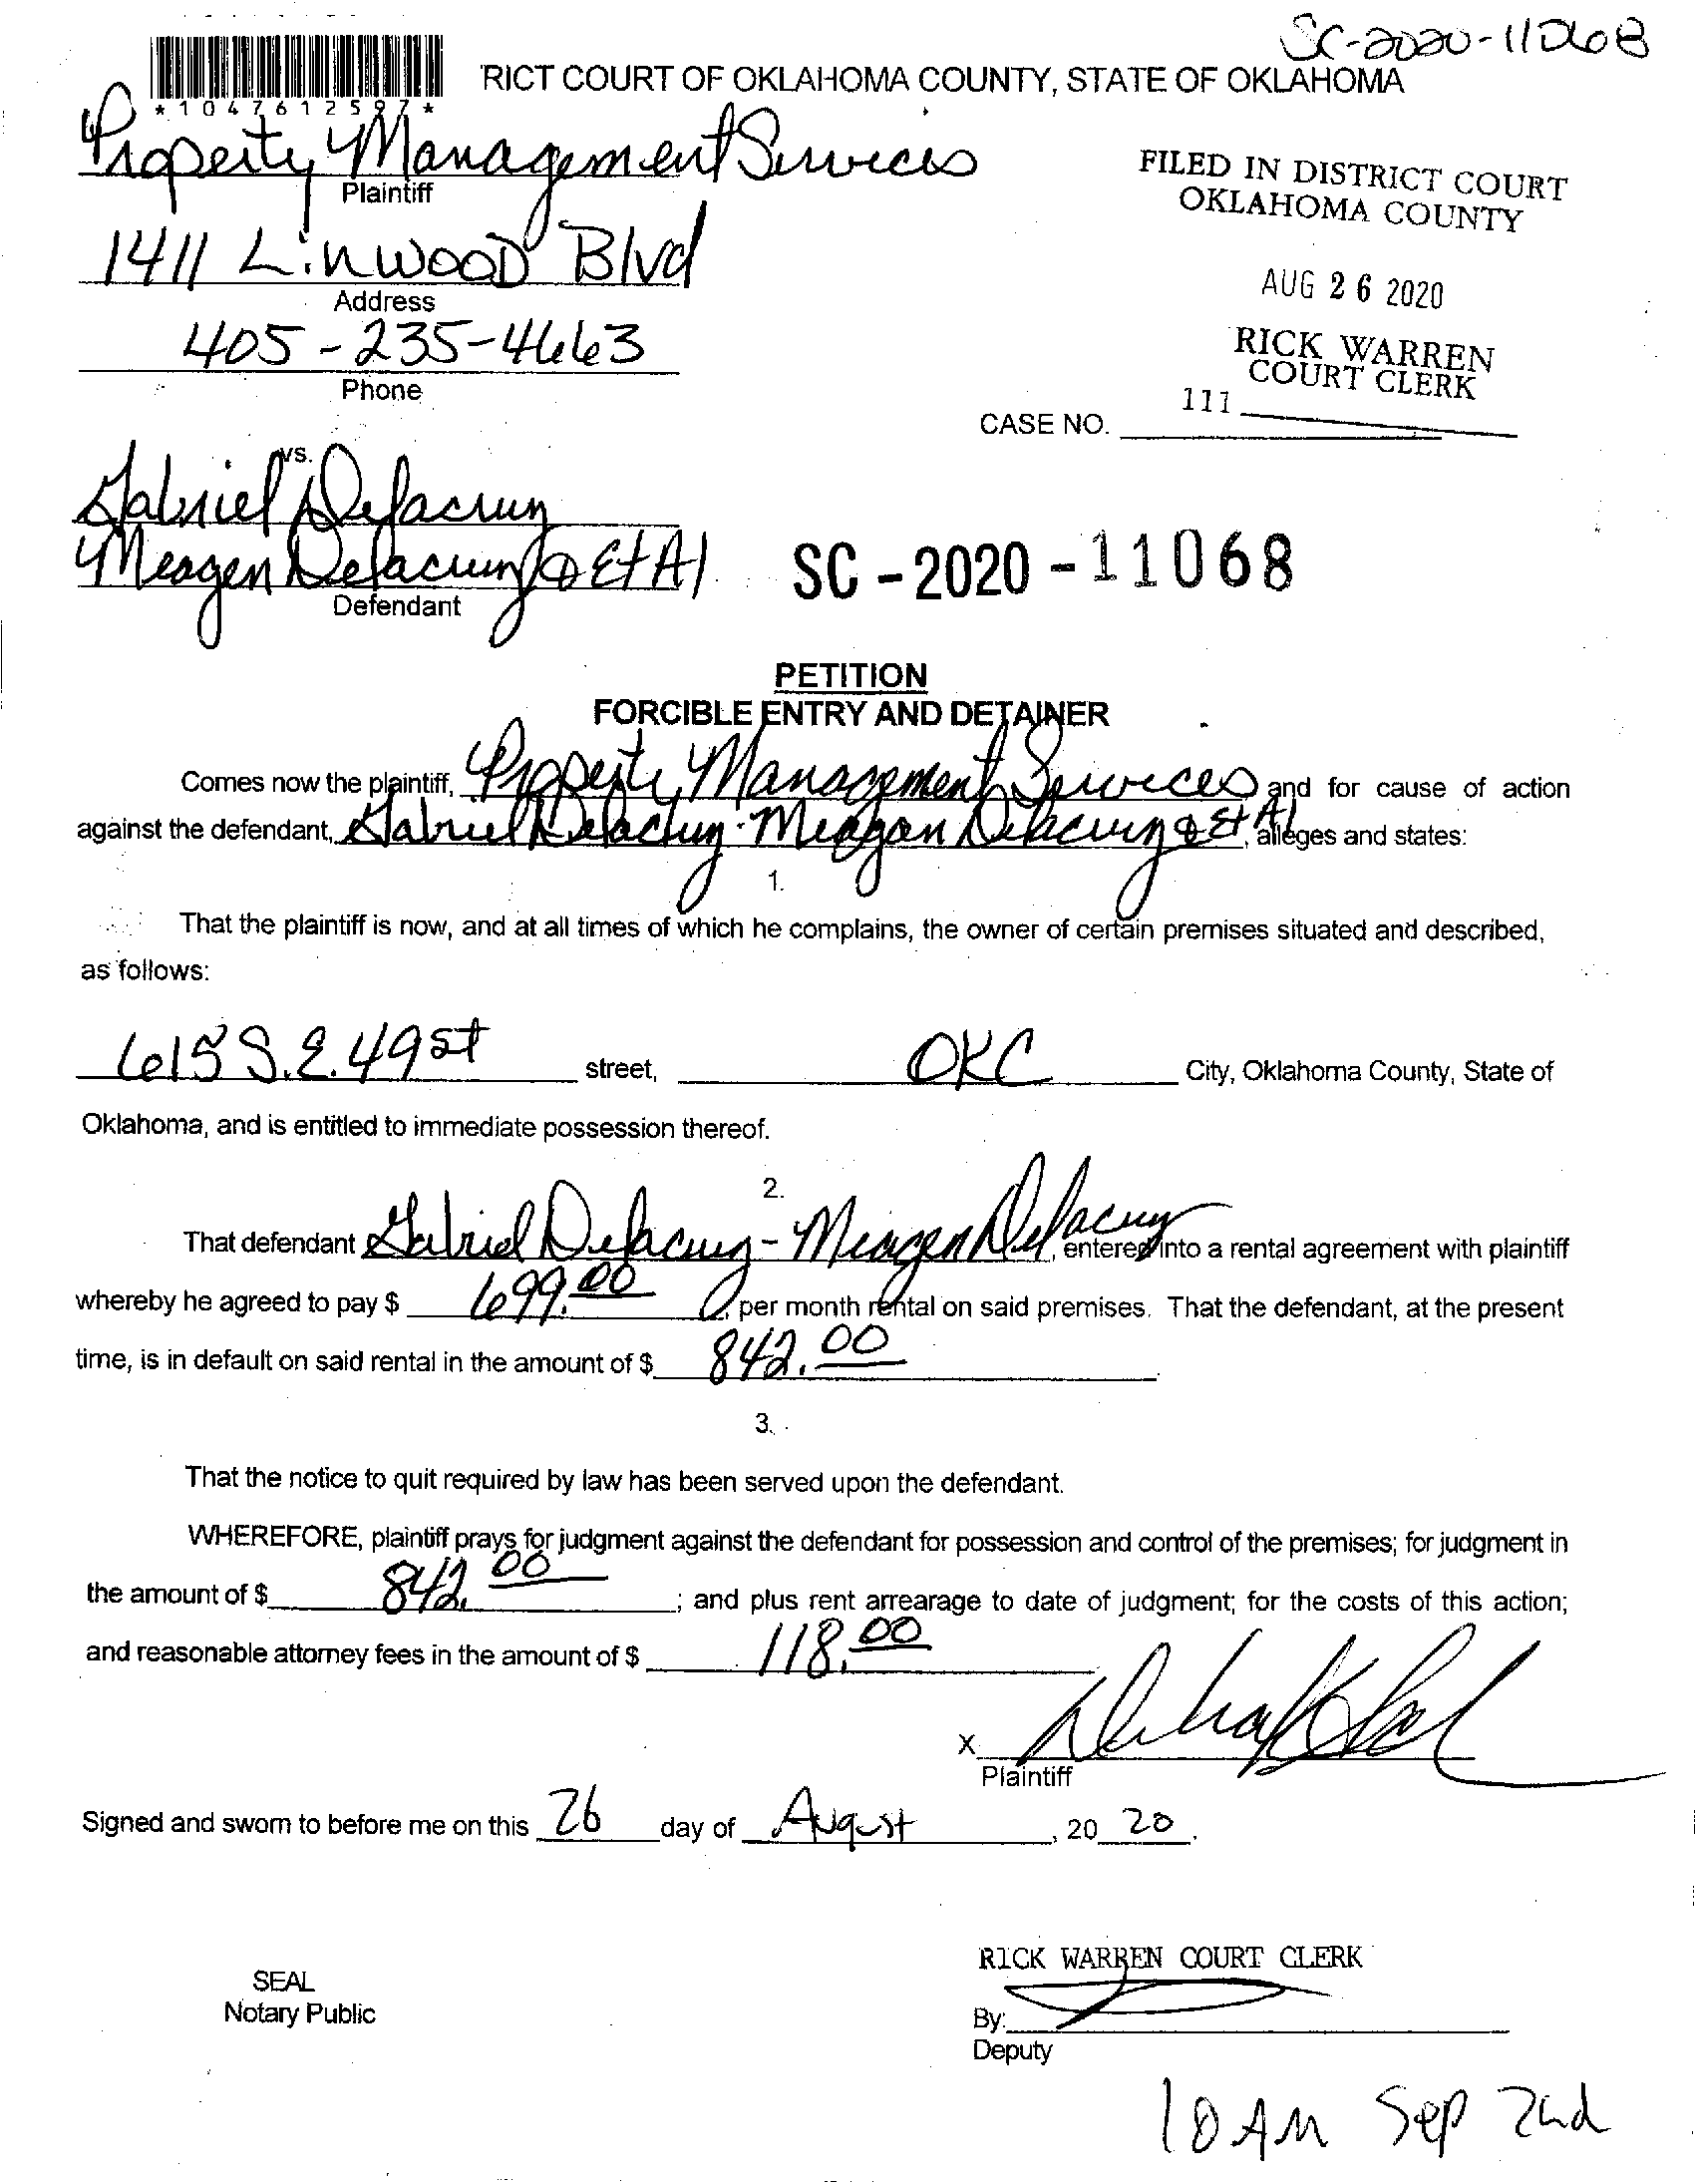 SC-2020-11068
RICT COURT OF OKLAHOMA COUNTY, STATE OF OKLAHOMA
*1047612597*
Property Management Services
Plaintiff
FILED IN DISTRICT COURT
OKLAHOMA COUNTY
1411 Linwood Blvd
Address
AUG 26 2020
405-235-4663
Phone
RICK WARREN
COURT CLERK
111
CASE NO.
vs.
Gabriel Delacruz
Meagen Delacruz & Et Al
Defendant
SC-2020-11068
PETITION
FORCIBLE ENTRY AND DETAINER
Comes now the plaintiff, Property Management Services and for cause of action
against the defendant, Gabriel Delacruz - Meagan Delacruz & Et Al, alleges and states:
1.
That the plaintiff is now, and at all times of which he complains, the owner of certain premises situated and described,
as follows:
615 S.E. 49 st street, OKC City, Oklahoma County, State of
Oklahoma, and is entitled to immediate possession thereof.
2.
That defendant Gabriel Delacruz - Meagen Delacruz, entered into a rental agreement with plaintiff
whereby he agreed to pay $ 699.00, per month rental on said premises. That the defendant, at the present
time, is in default on said rental in the amount of $ 842.00.
3.
That the notice to quit required by law has been served upon the defendant.
WHEREFORE, plaintiff prays for judgment against the defendant for possession and control of the premises; for judgment in
the amount of $ 842.00; and plus rent arrearage to date of judgment; for the costs of this action;
and reasonable attorney fees in the amount of $ 118.00
X
Plaintiff
Signed and sworn to before me on this 26 day of August, 20 20.
RICK WARREN COURT CLERK
SEAL
Notary Public
By:
Deputy
10 AM Sep 2nd